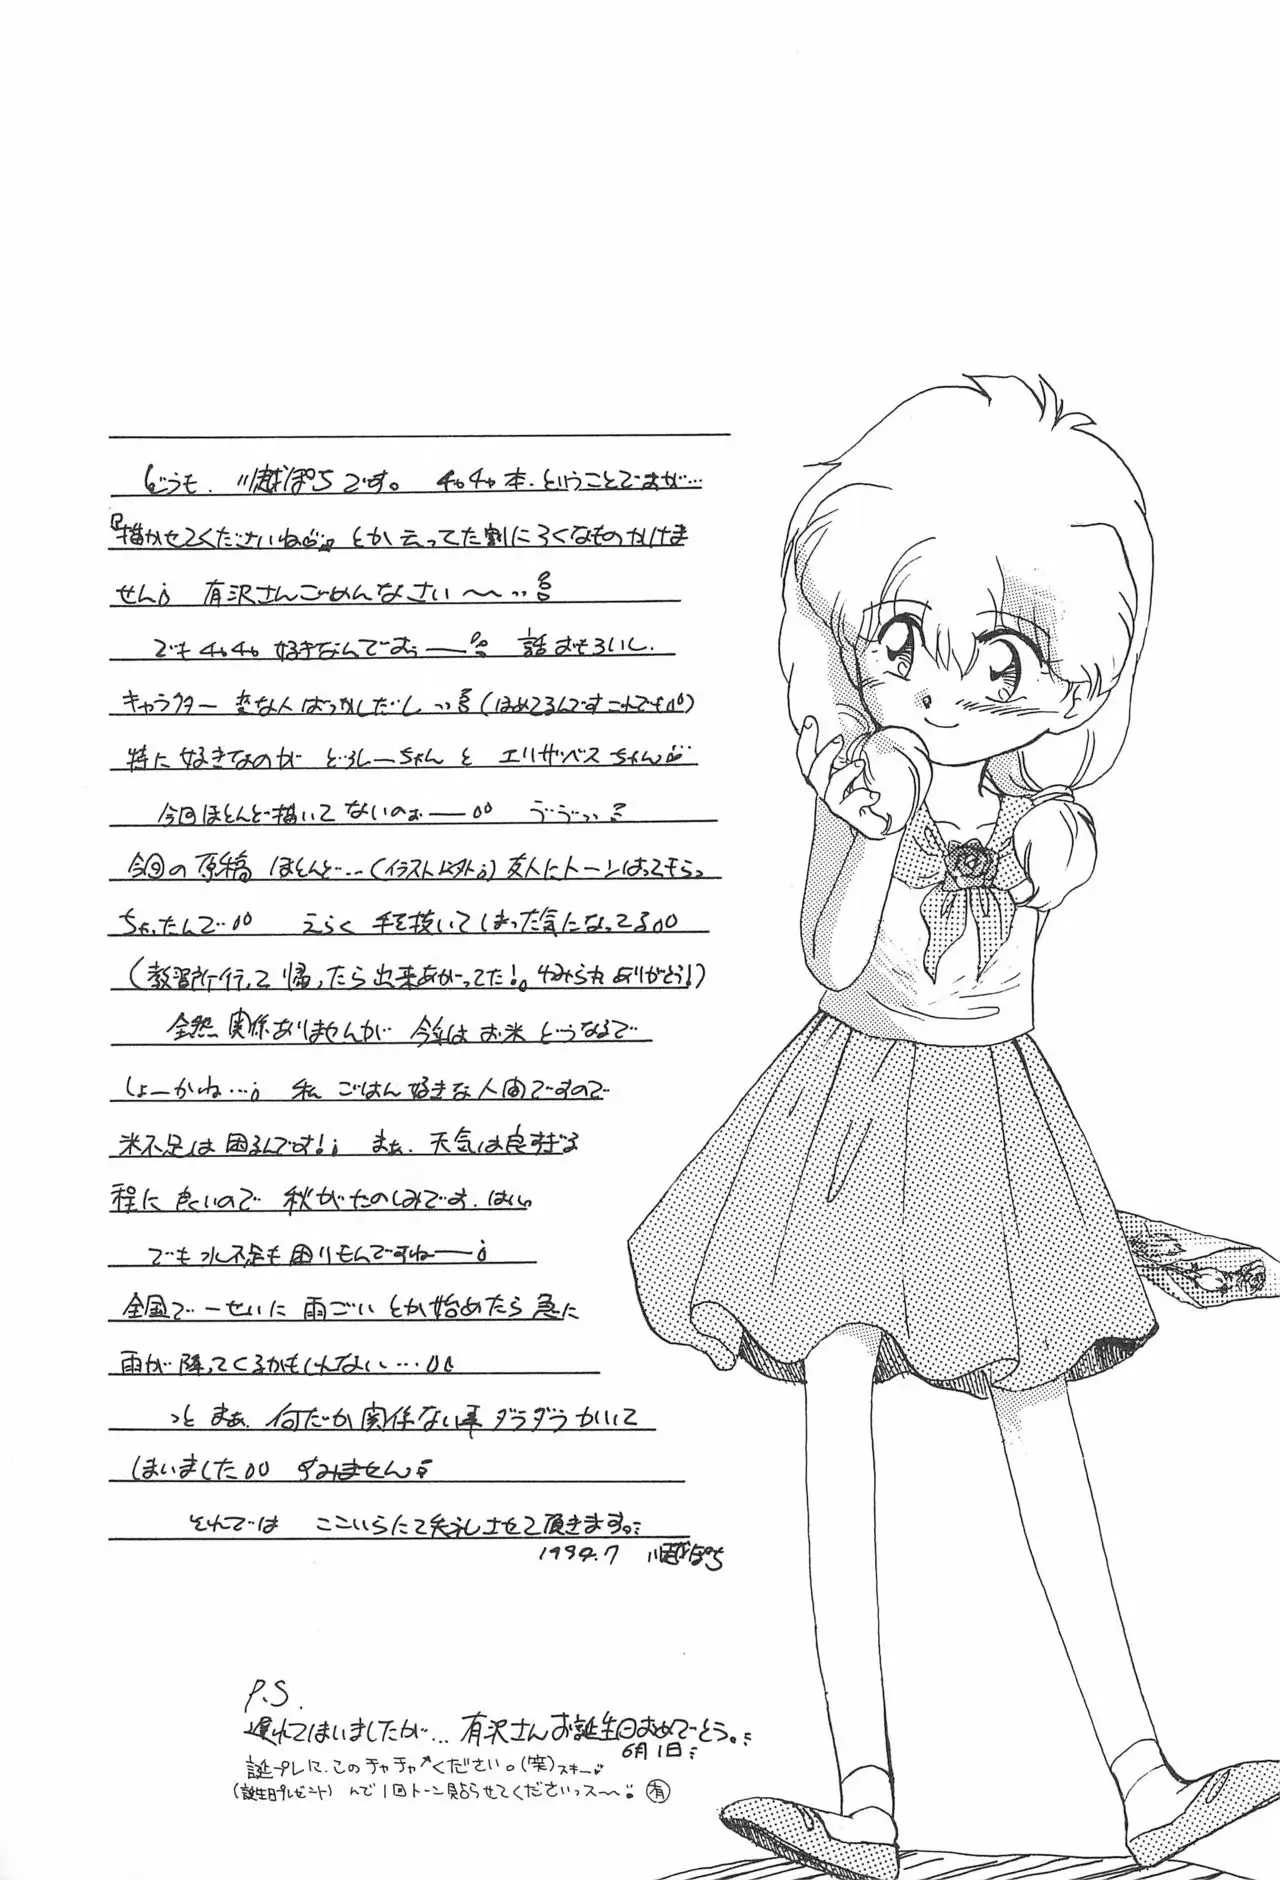 どうも、川越ぽちです。 チャチャ本、ということですが…
『描かせてくださいね』とか云ってた割にろくなものかけま
せん 有沢さんごめんなさい〜〜
でもチャチャ好きなんですぅー 話おもろいし、
キャラクター変な人ばっかしだし (ほめてるんですこれでも)
特に好きなのが どろしーちゃん と エリザベスちゃん
今回ほとんど描いてないのぉー ゔゔっ
今回の原稿 ほとんど…(イラスト以外) 友人にトーンはってもらっ
ちゃったんで えらく 手を抜いてしまった気になってる
(教習所行って 帰ったら出来あがってた! ありがとう!)
全然関係ありませんが 今年はお米 どうなるで
しょーかね… 私 ごはん好きな人間ですので
米不足は困るんです! まぁ、天気は良すぎる
程に良いので 秋がたのしみです、はい。
でも水不足も困りもんですねー
全国で一せいに 雨ごいとか始めたら急に
雨が降ってくるかもしんない…
っと まぁ、何だか関係ない事ダラダラかいて
しまいました すみません
それでは ここいらにて失礼させて頂きます。
1994.7 川越ぽち
P.S.
遅れてしまいましたが… 有沢さんお誕生日おめでとう。
6月1日
誕プレに、このチャチャください。(笑)スキー
(誕生日プレゼント) んで1回トーン貼らせてくださいっス〜 有